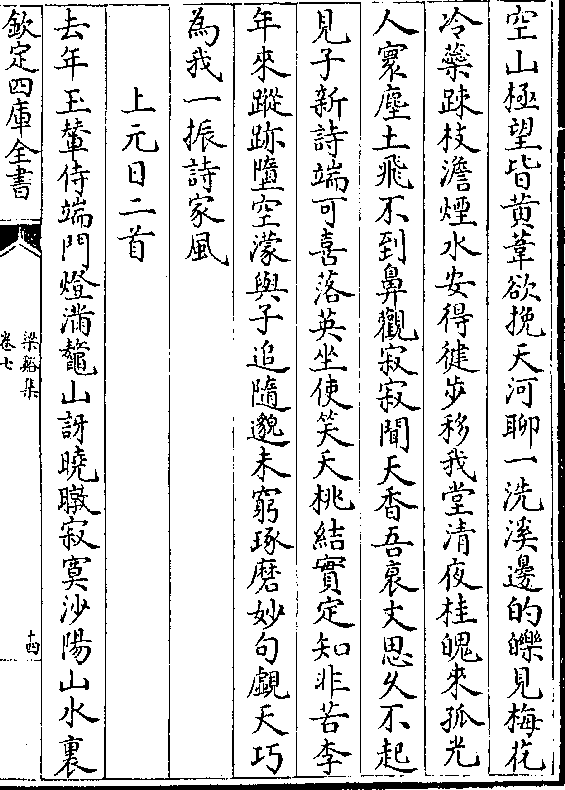 空山極望皆黄葦欲挽天河聊一洗溪邊的皪見梅花
冷蘂踈枝澹煙水安得徒步移我堂清夜桂魄來孤光
人寰塵土飛不到鼻觀寂寂聞天香吾衰文思久不起
見子新詩端可喜落英坐使笑夭桃結實定知非苦李
年來蹤跡墮空濛與子追隨邈未窮琢磨妙句覷天巧
為我一振詩家風
上元日二首
去年玉輦侍端門燈滿鼇山訝曉暾寂寞沙陽山水裏
欽定四庫全書
梁谿集
卷七
十四